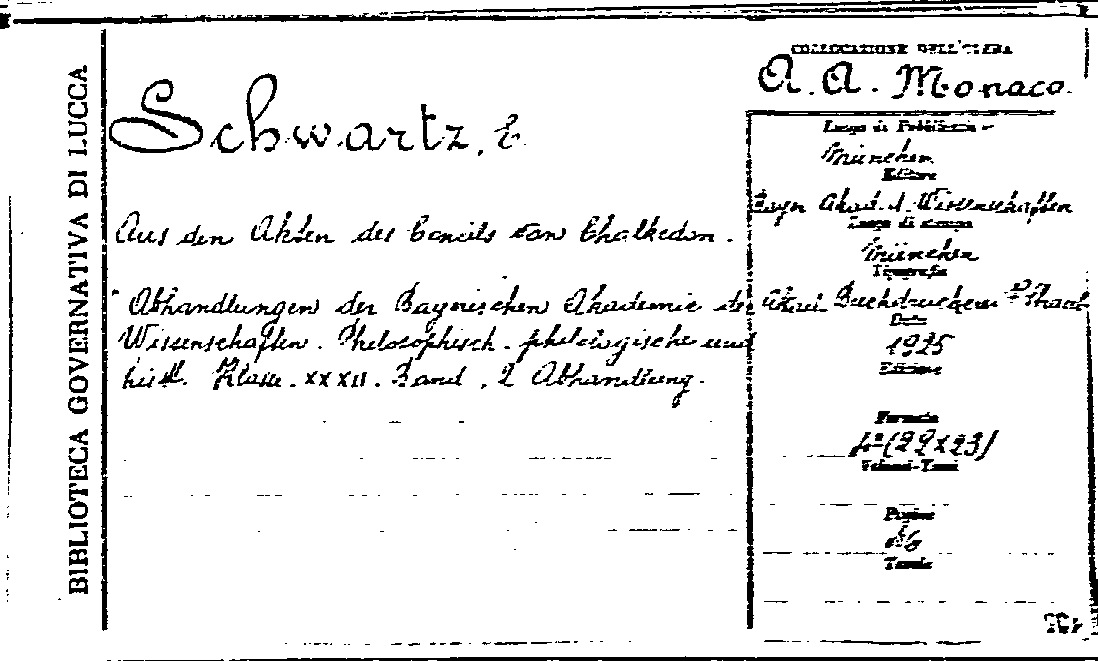 BIBLIOTECA GOVERNATIVA DI LUCCA
Schwartz, E
Aus den Akten des Concils von Chalkedon.
"Abhandlungen der Bayrischen Akademie der
Wissenschaften. Philosophisch-philologische und
hist. Klasse. XXXII. Band, 2 Abhandlung.
COLLOCAZIONE DELL'OPERA
A. A. Monaco.
Luogo di Pubblicaz.
München
Editore
Bayr Akad. d. Wissenschaften
Luogo di stampa
München
Tipografia
Akad. Buchdruckerei Straub
Data
1925
Edizione
Formato
4º (22x23)
Volumi-Tomi
Pagine
Tavole